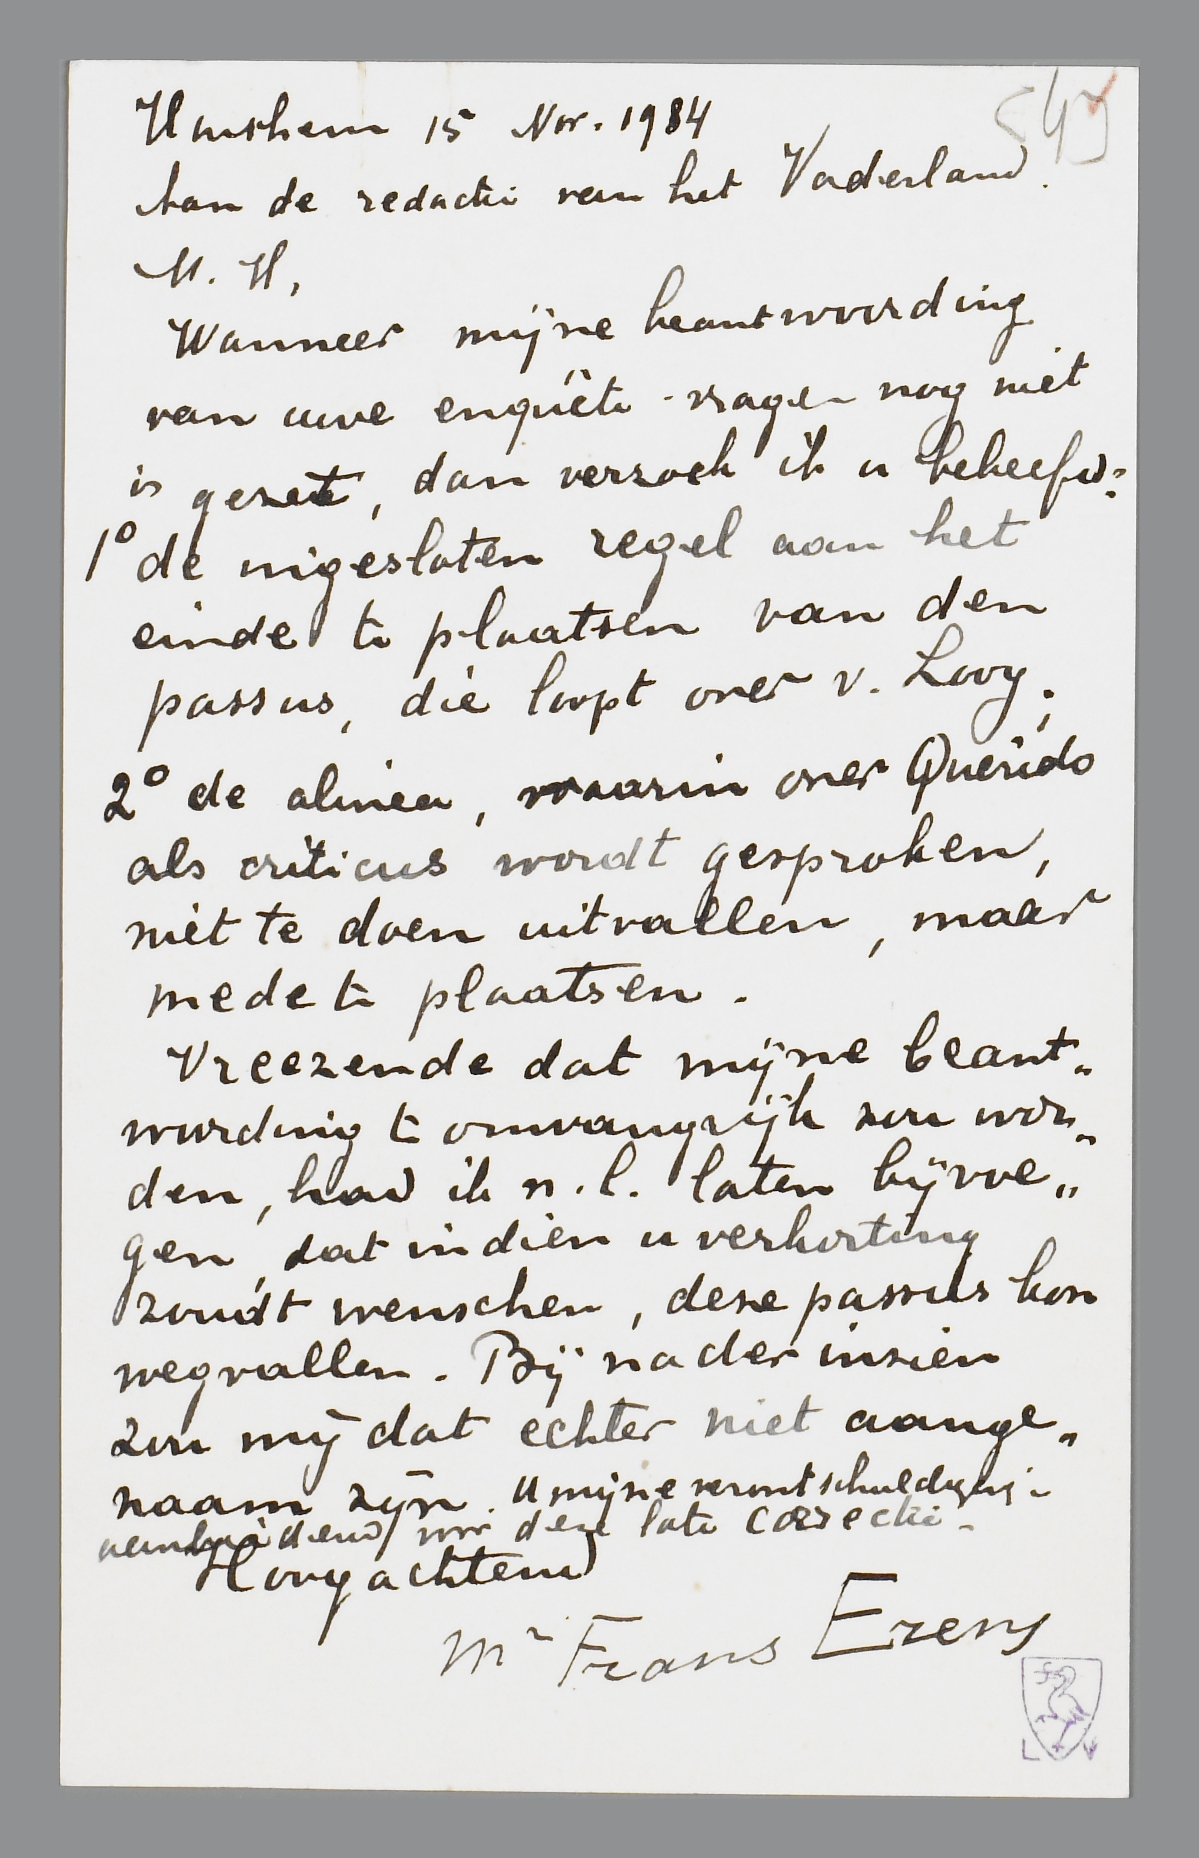 Houthem 15 Nov. 1934
543
Aan de redactie van het Vaderland.
M. H,
Wanneer mijne beantwoording
van uwe enquête-vragen nog niet
is gezet, dan verzoek ik u beleefd:
1º de ingesloten regel aan het
einde te plaatsen van den
passus, die loopt over v. Looy;
2º de alinea, waarin over Querido
als criticus wordt gesproken,
niet te doen uitvallen, maar
mede te plaatsen.
Vreezende dat mijne beant„
woording te omvangrijk zou wor„
den, had ik n.l. laten bijvoe„
gen, dat indien u verkorting
zoudt wenschen, deze passus kon
wegvallen. Bij nader inzien
zou mij dat echter niet aange„
naam zijn. U mijne verontschuldiging
aanbiedend voor deze late correctie.
Hoogachtend
Mr Frans Erens
L M